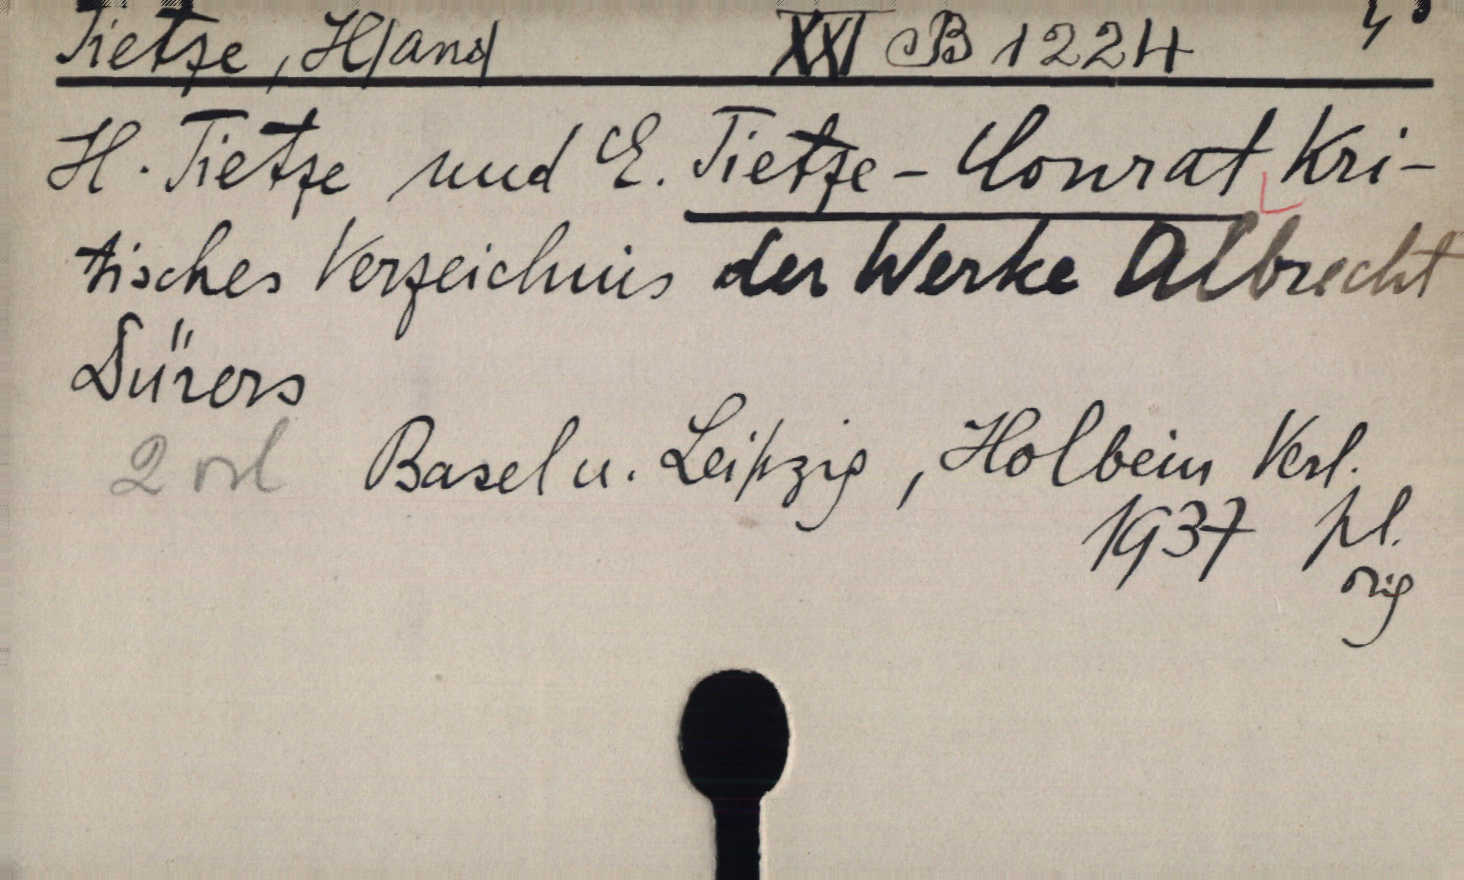 Tietze, H/and/ XXI B 1224
H. Tietze und E. Tietze-Conrat Kri-
tisches Verzeichnis der Werke Albrecht
Dürers
2 vol Basel u. Leipzig, Holbein Verl.
1937 pl.
orig